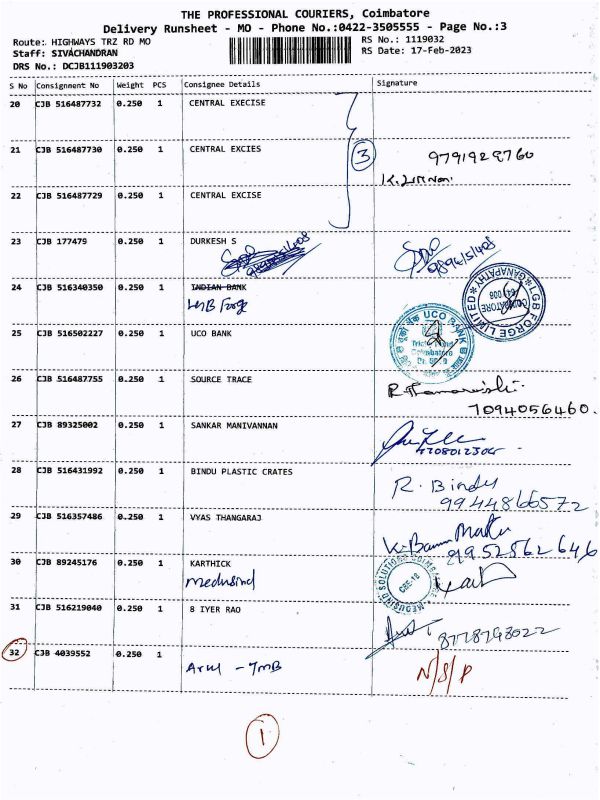 THE PROFESSIONAL COURIERS, Coimbatore
Delivery Runsheet - MO - Phone No.:0422-3505555 - Page No.:3
Route: HIGHWAYS TRZ RD MO
RS No.: 1119032
Staff: SIVACHANDRAN
RS Date: 17-Feb-2023
DRS No.: DCJB111903203
S No Consignment No Weight PCS Consignee Details Signature
20 CJB 516487732 0.250 1 CENTRAL EXECISE
21 CJB 516487730 0.250 1 CENTRAL EXCIES
3
9791929760
22 CJB 516487729 0.250 1 CENTRAL EXCISE
23 CJB 177479 0.250 1 DURKESH S
24 CJB 516340350 0.250 1 INDIAN BANK
LGB Forge
LGB FORGE LIMITED
GANAPATHY
COIMBATORE
25 CJB 516502227 0.250 1 UCO BANK
UCO BANK
Coimbatore
26 CJB 516487755 0.250 1 SOURCE TRACE
7094056460.
27 CJB 89325002 0.250 1 SANKAR MANIVANNAN
28 CJB 516431992 0.250 1 BINDU PLASTIC CRATES
R. Bindu
9944866572
29 CJB 516357486 0.250 1 VYAS THANGARAJ
9952562646
30 CJB 89245176 0.250 1 KARTHICK
Medusind
MEDUSIND SOLUTIONS
CBE-18
31 CJB 516219040 0.250 1 8 IYER RAO
8778798022
32 CJB 4039552 0.250 1
Arul - TMB
N/S/P
1